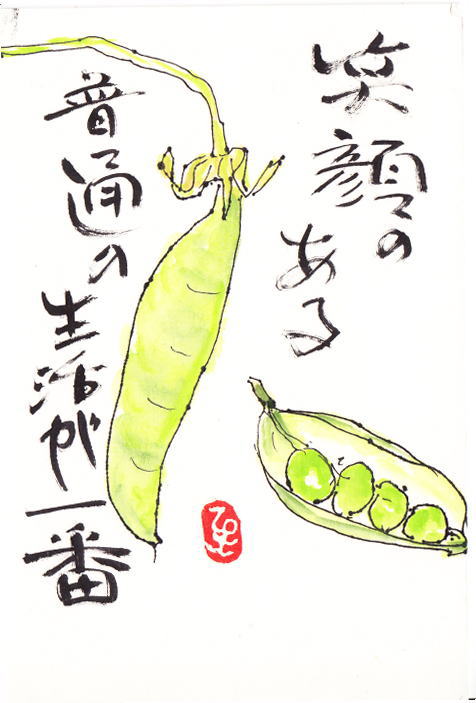 笑顔の
ある
普通の
生活が
一番